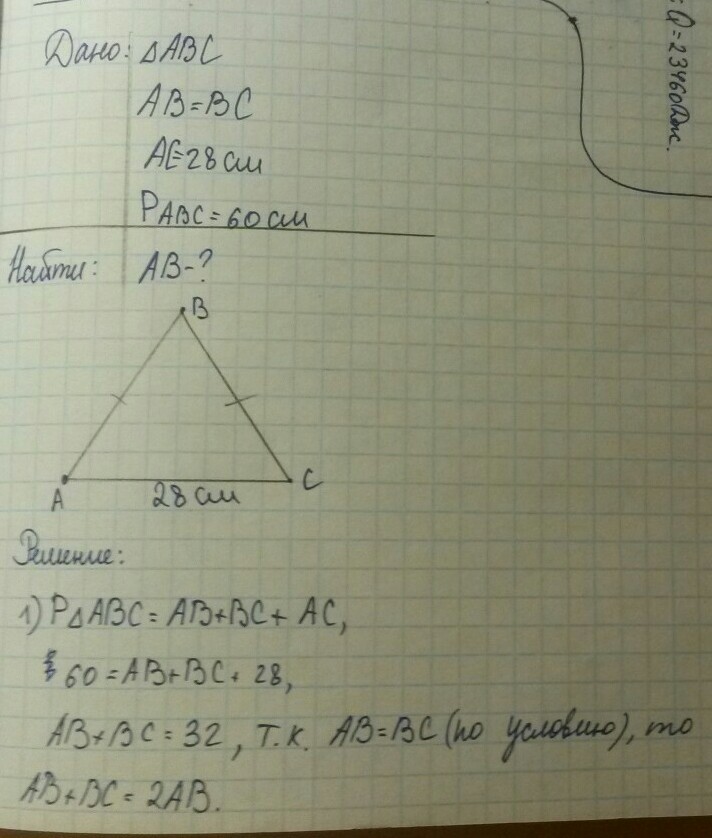 Дано: △ABC
AB=BC
AC=28 см
PABC=60 см
Найти: AB-?
B
A
28 см
C
Решение:
1) P△ABC=AB+BC+AC,
60=AB+BC+28,
AB+BC=32, т.к. AB=BC (по условию), то
AB+BC=2AB.
: Q=23460Дж.